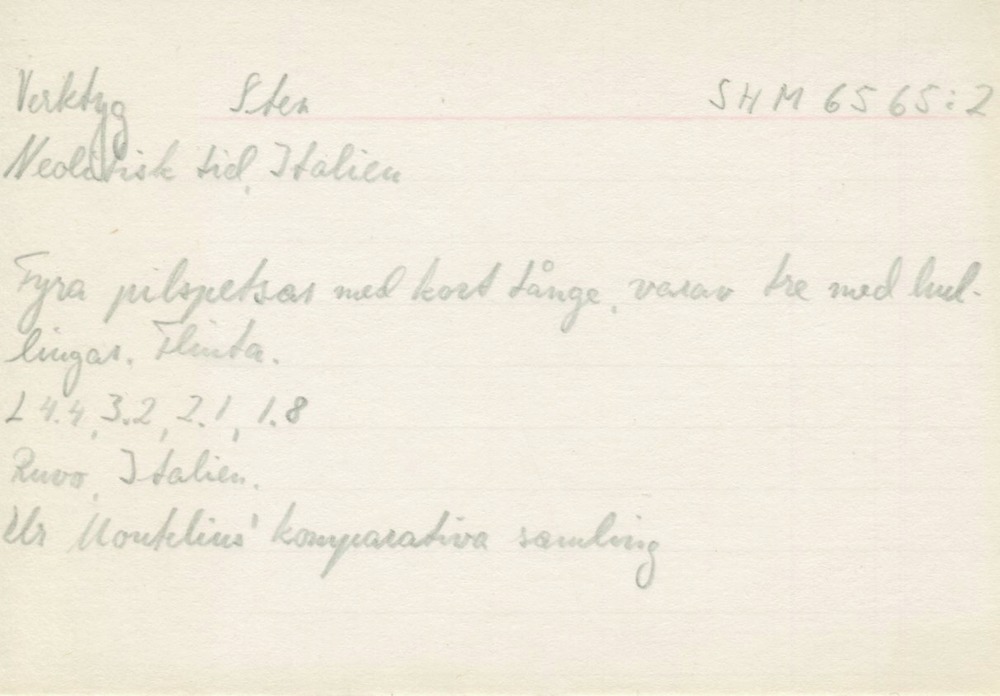 Verktyg Sten SHM 6565:2
Neolitisk tid, Italien
Fyra pilspetsar med kort tånge, varav tre med hul-
lingar. Flinta.
L 4.4, 3.2, 2.1, 1.8
Ruvo, Italien.
Ur Montelius' komparativa samling